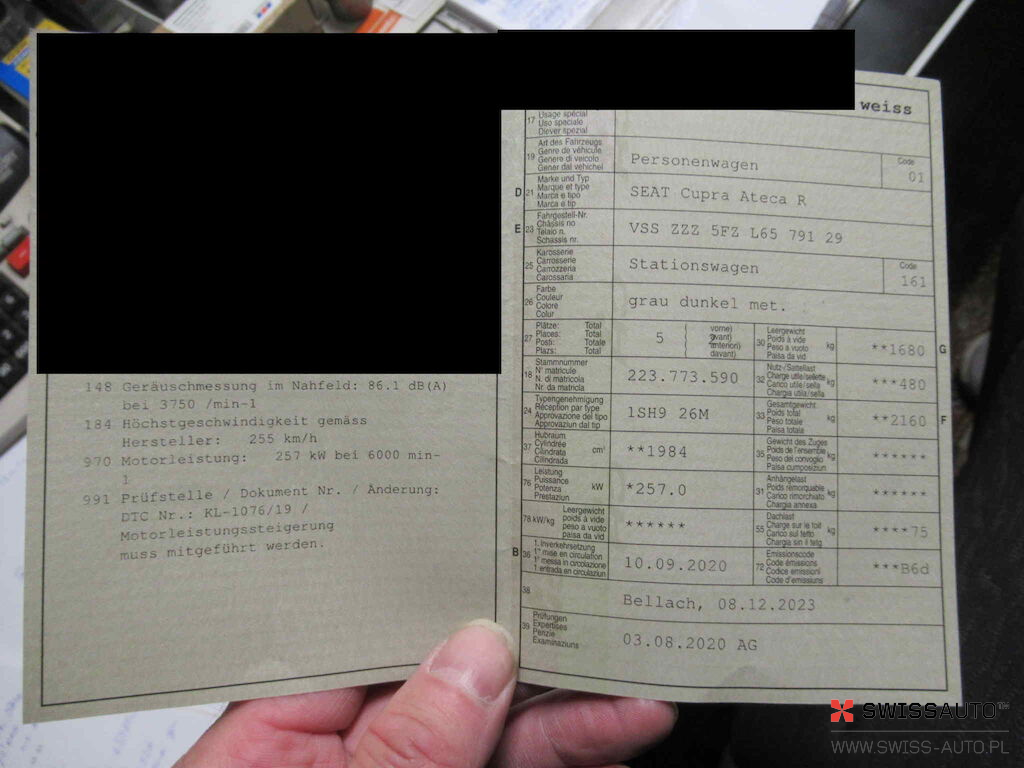 148 Geräuschmessung im Nahfeld: 86.1 dB(A)
bei 3750 /min-1
184 Höchstgeschwindigkeit gemäss
Hersteller: 255 km/h
970 Motorleistung: 257 kW bei 6000 min-
1
991 Prüfstelle / Dokument Nr. / Änderung:
DTC Nr.: KL-1076/19 /
Motorleistungssteigerung
muss mitgeführt werden.
weiss
17 Usage spécial
Uso speciale
Diever spezial
19 Art des Fahrzeugs
Genre de véhicule
Genere di veicolo
Gener dal vehichel
Personenwagen
Code
01
D 21 Marke und Typ
Marque et type
Marca e tipo
Marca e tip
SEAT Cupra Ateca R
E 23 Fahrgestell-Nr.
Châssis no
Telaio n.
Schassis nr.
VSS ZZZ 5FZ L65 791 29
25 Karosserie
Carrosserie
Carrozzeria
Carossaria
Stationswagen
Code
161
26 Farbe
Couleur
Colore
Colur
grau dunkel met.
27 Plätze: Total
Places: Total
Posti: Totale
Plazs: Total
5
( vorne)
( avant)
( anterion)
( davant)
?
30 Leergewicht
Poids à vide
Peso a vuoto
Paisa da vid
kg
**1680 G
18 Stammnummer
N° matricule
N. di matricola
Nr. da matricla
223.773.590
32 Nutz-/Sattellast
Charge utile/sellette
Carico utile/sella
Chargia utila/sella
kg
***480
24 Typengenehmigung
Réception par type
Approvazione del tipo
Approvaziun dal tip
1SH9 26M
33 Gesamtgewicht
Poids total
Peso totale
Paisa totala
kg
**2160 F
37 Hubraum
Cylindrée
Cilindrata
Cilindrada
cm³
**1984
35 Gewicht des Zuges
Poids de l'ensemble
Peso del convoglio
Paisa cumposiziun
kg
******
76 Leistung
Puissance
Potenza
Prestaziun
kW
*257.0
31 Anhängelast
Poids remorquable
Carico rimorchiato
Chargia annexa
kg
******
78 kW/kg Leergewicht
poids à vide
peso a vuoto
paisa da vid
******
55 Dachlast
Charge sur le toit
Carico sul tetto
Chargia sin il tetg
kg
****75
B 36 1. Inverkehrsetzung
1re mise en circulation
1a messa in circolazione
1. entrada en circulaziun
10.09.2020
72 Emissionscode
Code émissions
Codice emissioni
Code d'emissiuns
***B6d
38
Bellach, 08.12.2023
39 Prüfungen
Expertises
Perizie
Examinaziuns
03.08.2020 AG
SWISSAUTO
WWW.SWISS-AUTO.PL